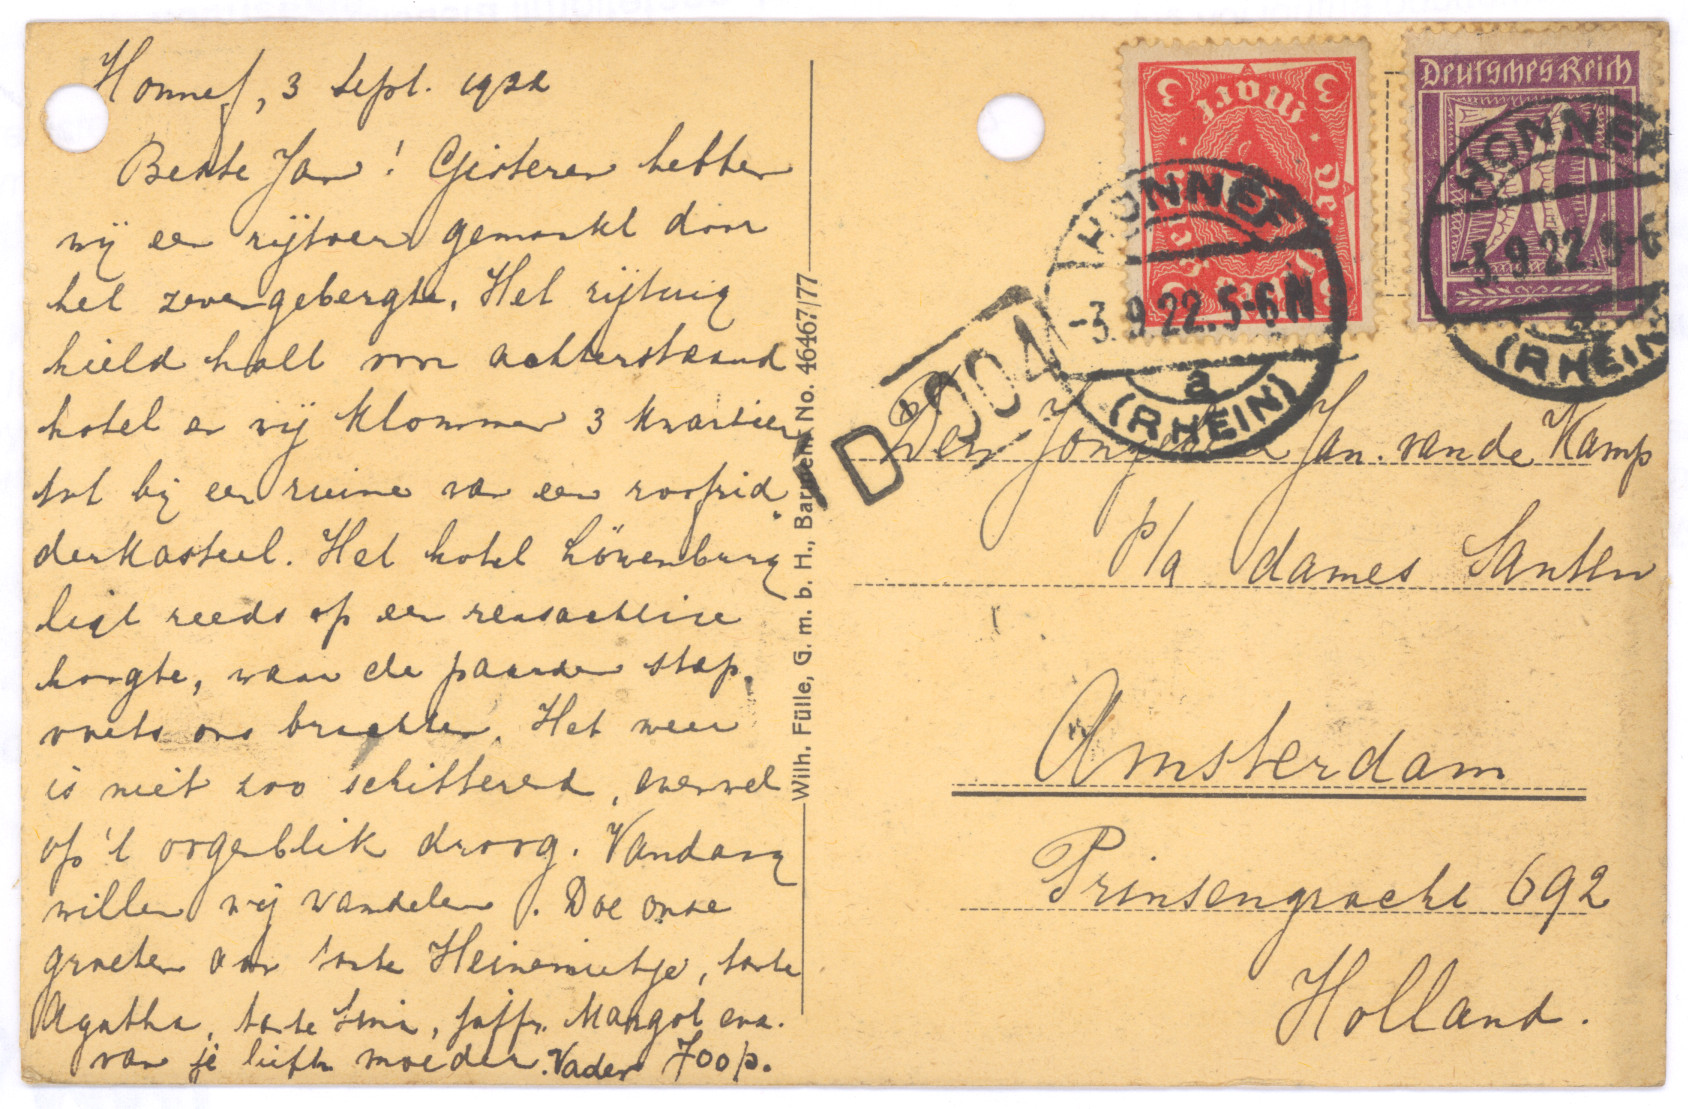 Honnef, 3 Sept. 1922
Beste Jan! Gisteren hebben
wij een rijtoer gemaakt door
het zevengebergte. Het rijtuig
hield halt voor achterstaand
hotel en wij klommen 3 kwartier
tot bij een ruine van een roofrid
derkasteel. Het hotel Löwenburg
ligt reeds op een reusachtige
hoogte, waar de paarden stap
voets ons brachten. Het weer
is niet zoo schitterend, evenwel
op 't oogenblik droog. Vandaag
willen wij wandelen. Doe onze
groeten aan tante Heinemietje, tante
Agatha, tante Sini, juffr. Margot enz.
van je liefh. moeder. Vader Joop.
Wilh. Fülle, G. m. b. H., Barmen. No. 46467/77
3 Mark 3
Deutsches Reich
Deutsches Reich
HONNEF
-3.9.22.5-6N
a
(RHEIN)
HONNEF
-3.9.22.5-6
(RHEIN
D
Den Jongeheer Jan. van de Kamp
p/a dames Santen
Amsterdam
Prinsengracht 692
Holland.